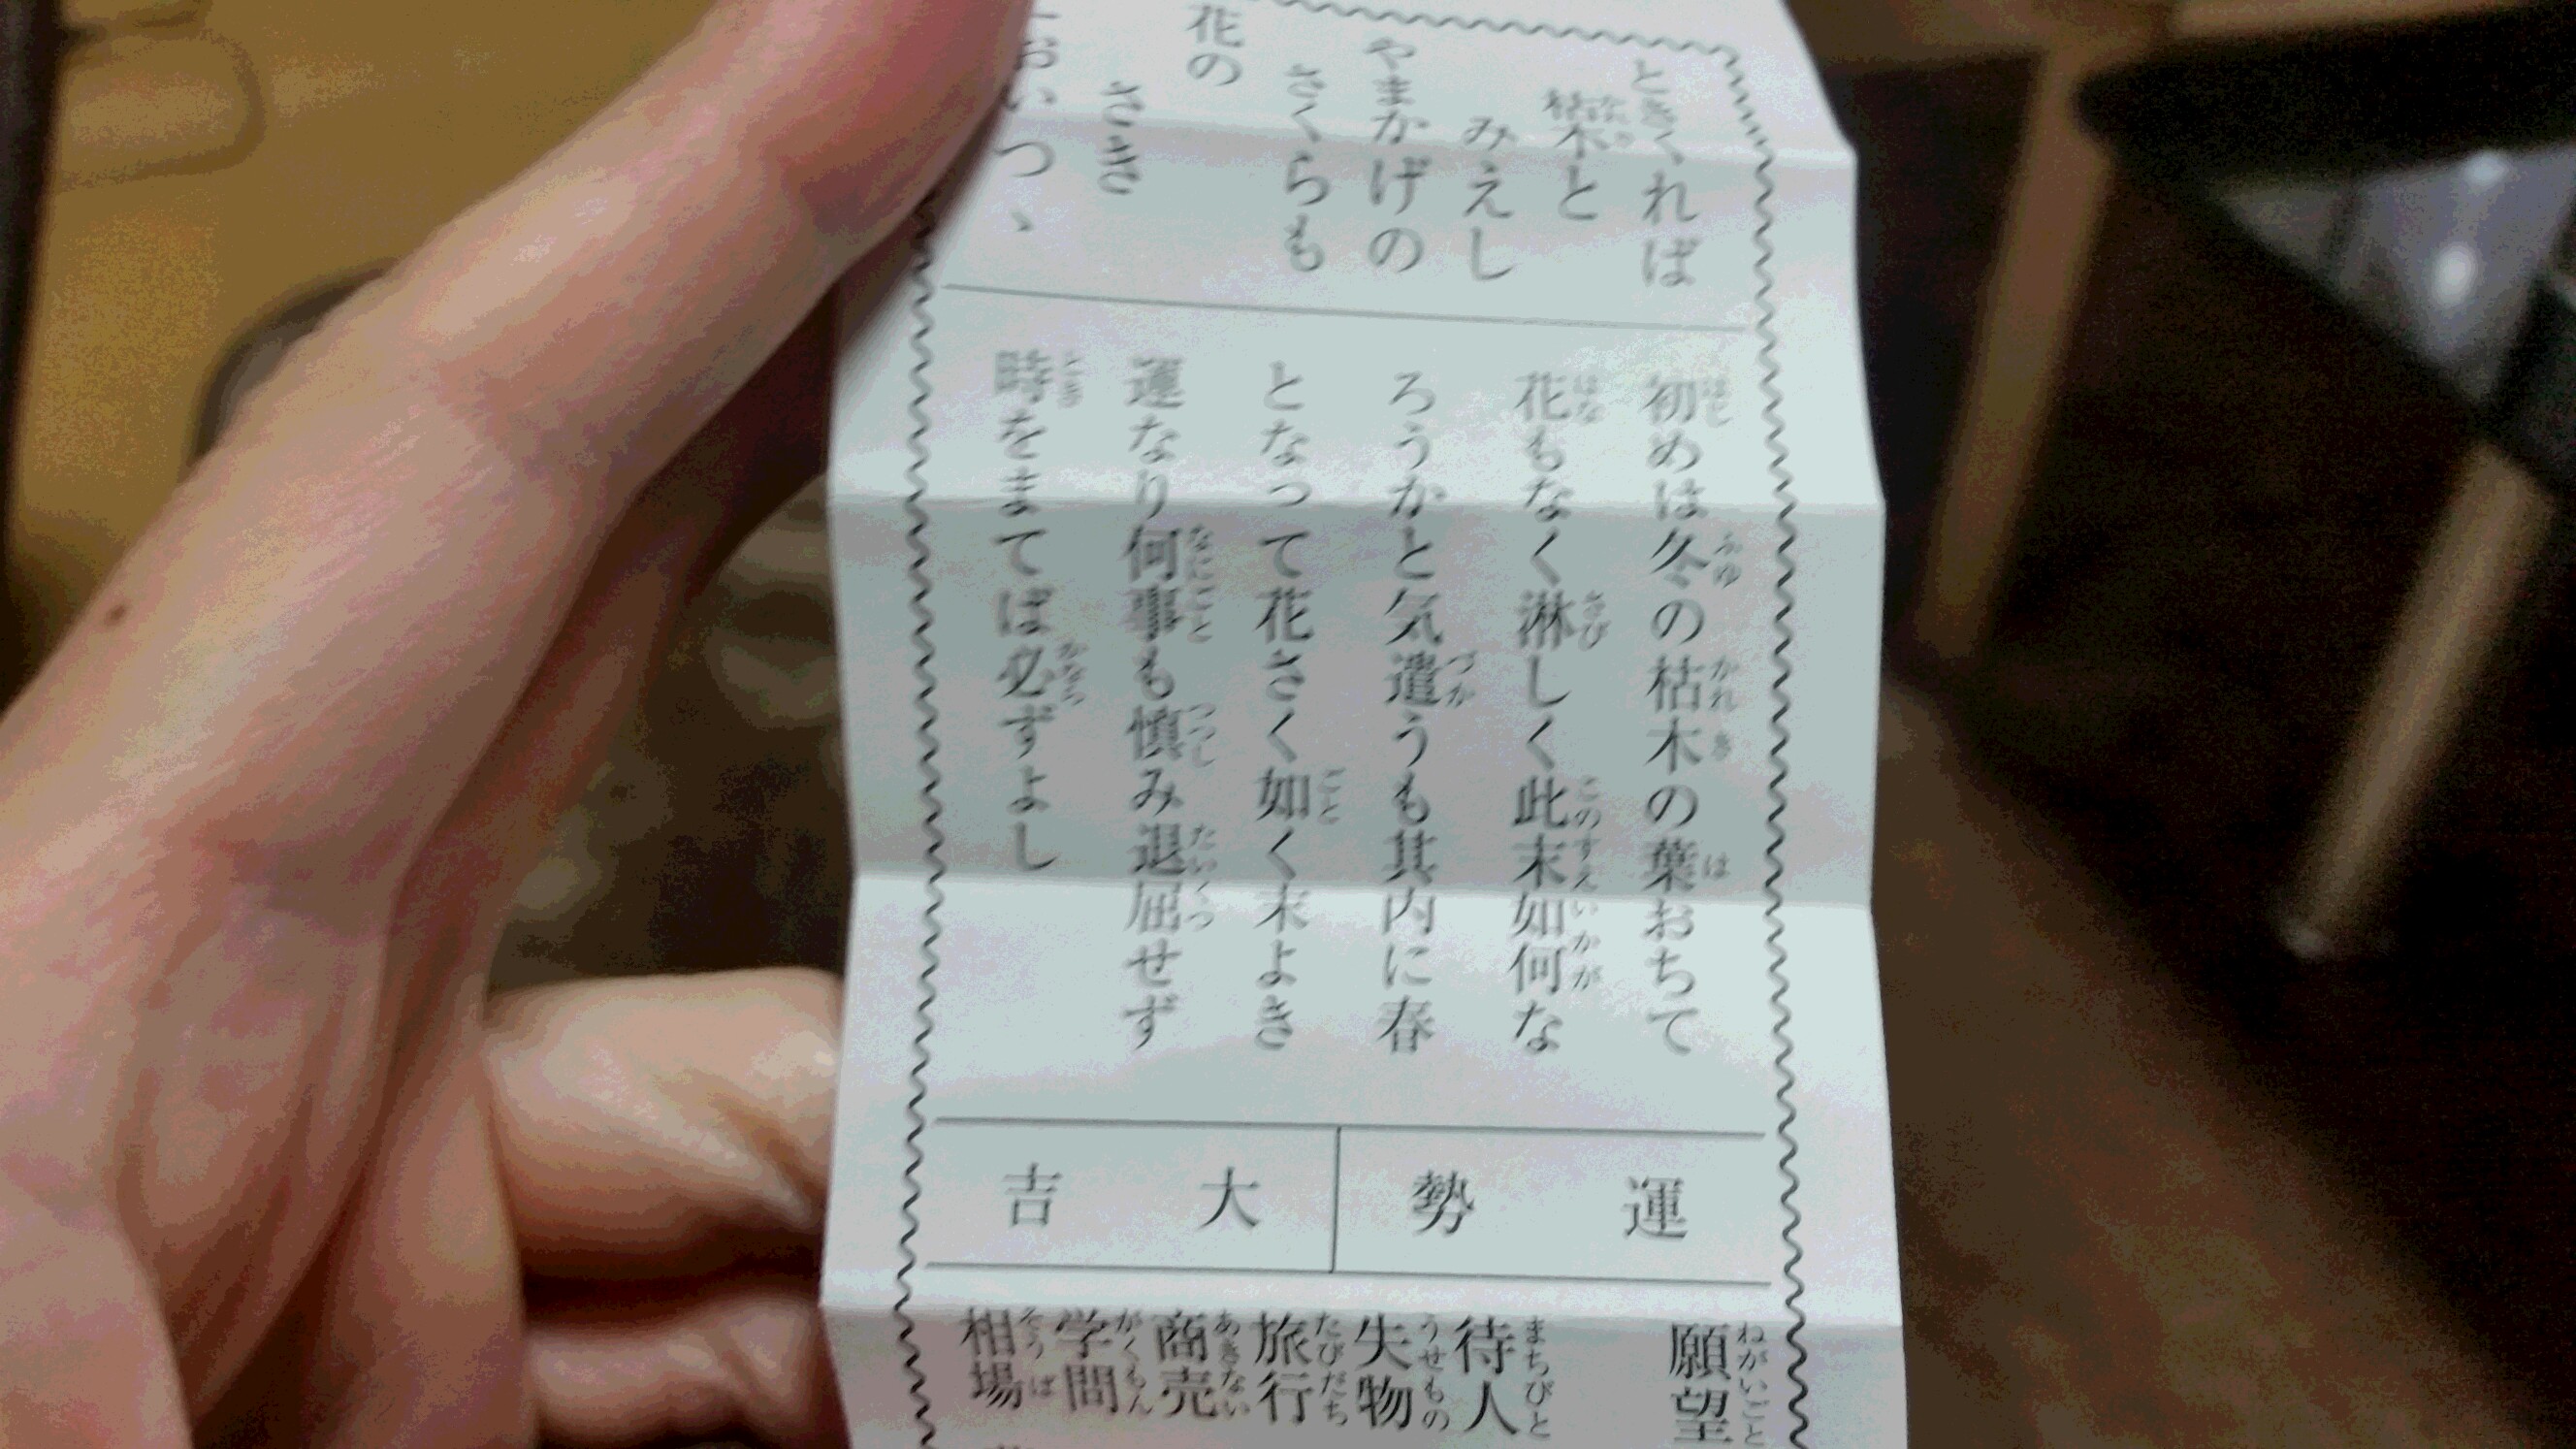 ときくれば
枯木と
みえし
やまかげの
さくらも
花の
さき
おいつゝ
初めは冬の枯木の葉おちて
花もなく淋しく此末如何な
ろうかと気遣うも其内に春
となって花さく如く末よき
運なり何事も慎み退屈せず
時をまてば必ずよし
運勢
大吉
願望
待人
失物
旅行
商売
学問
相場